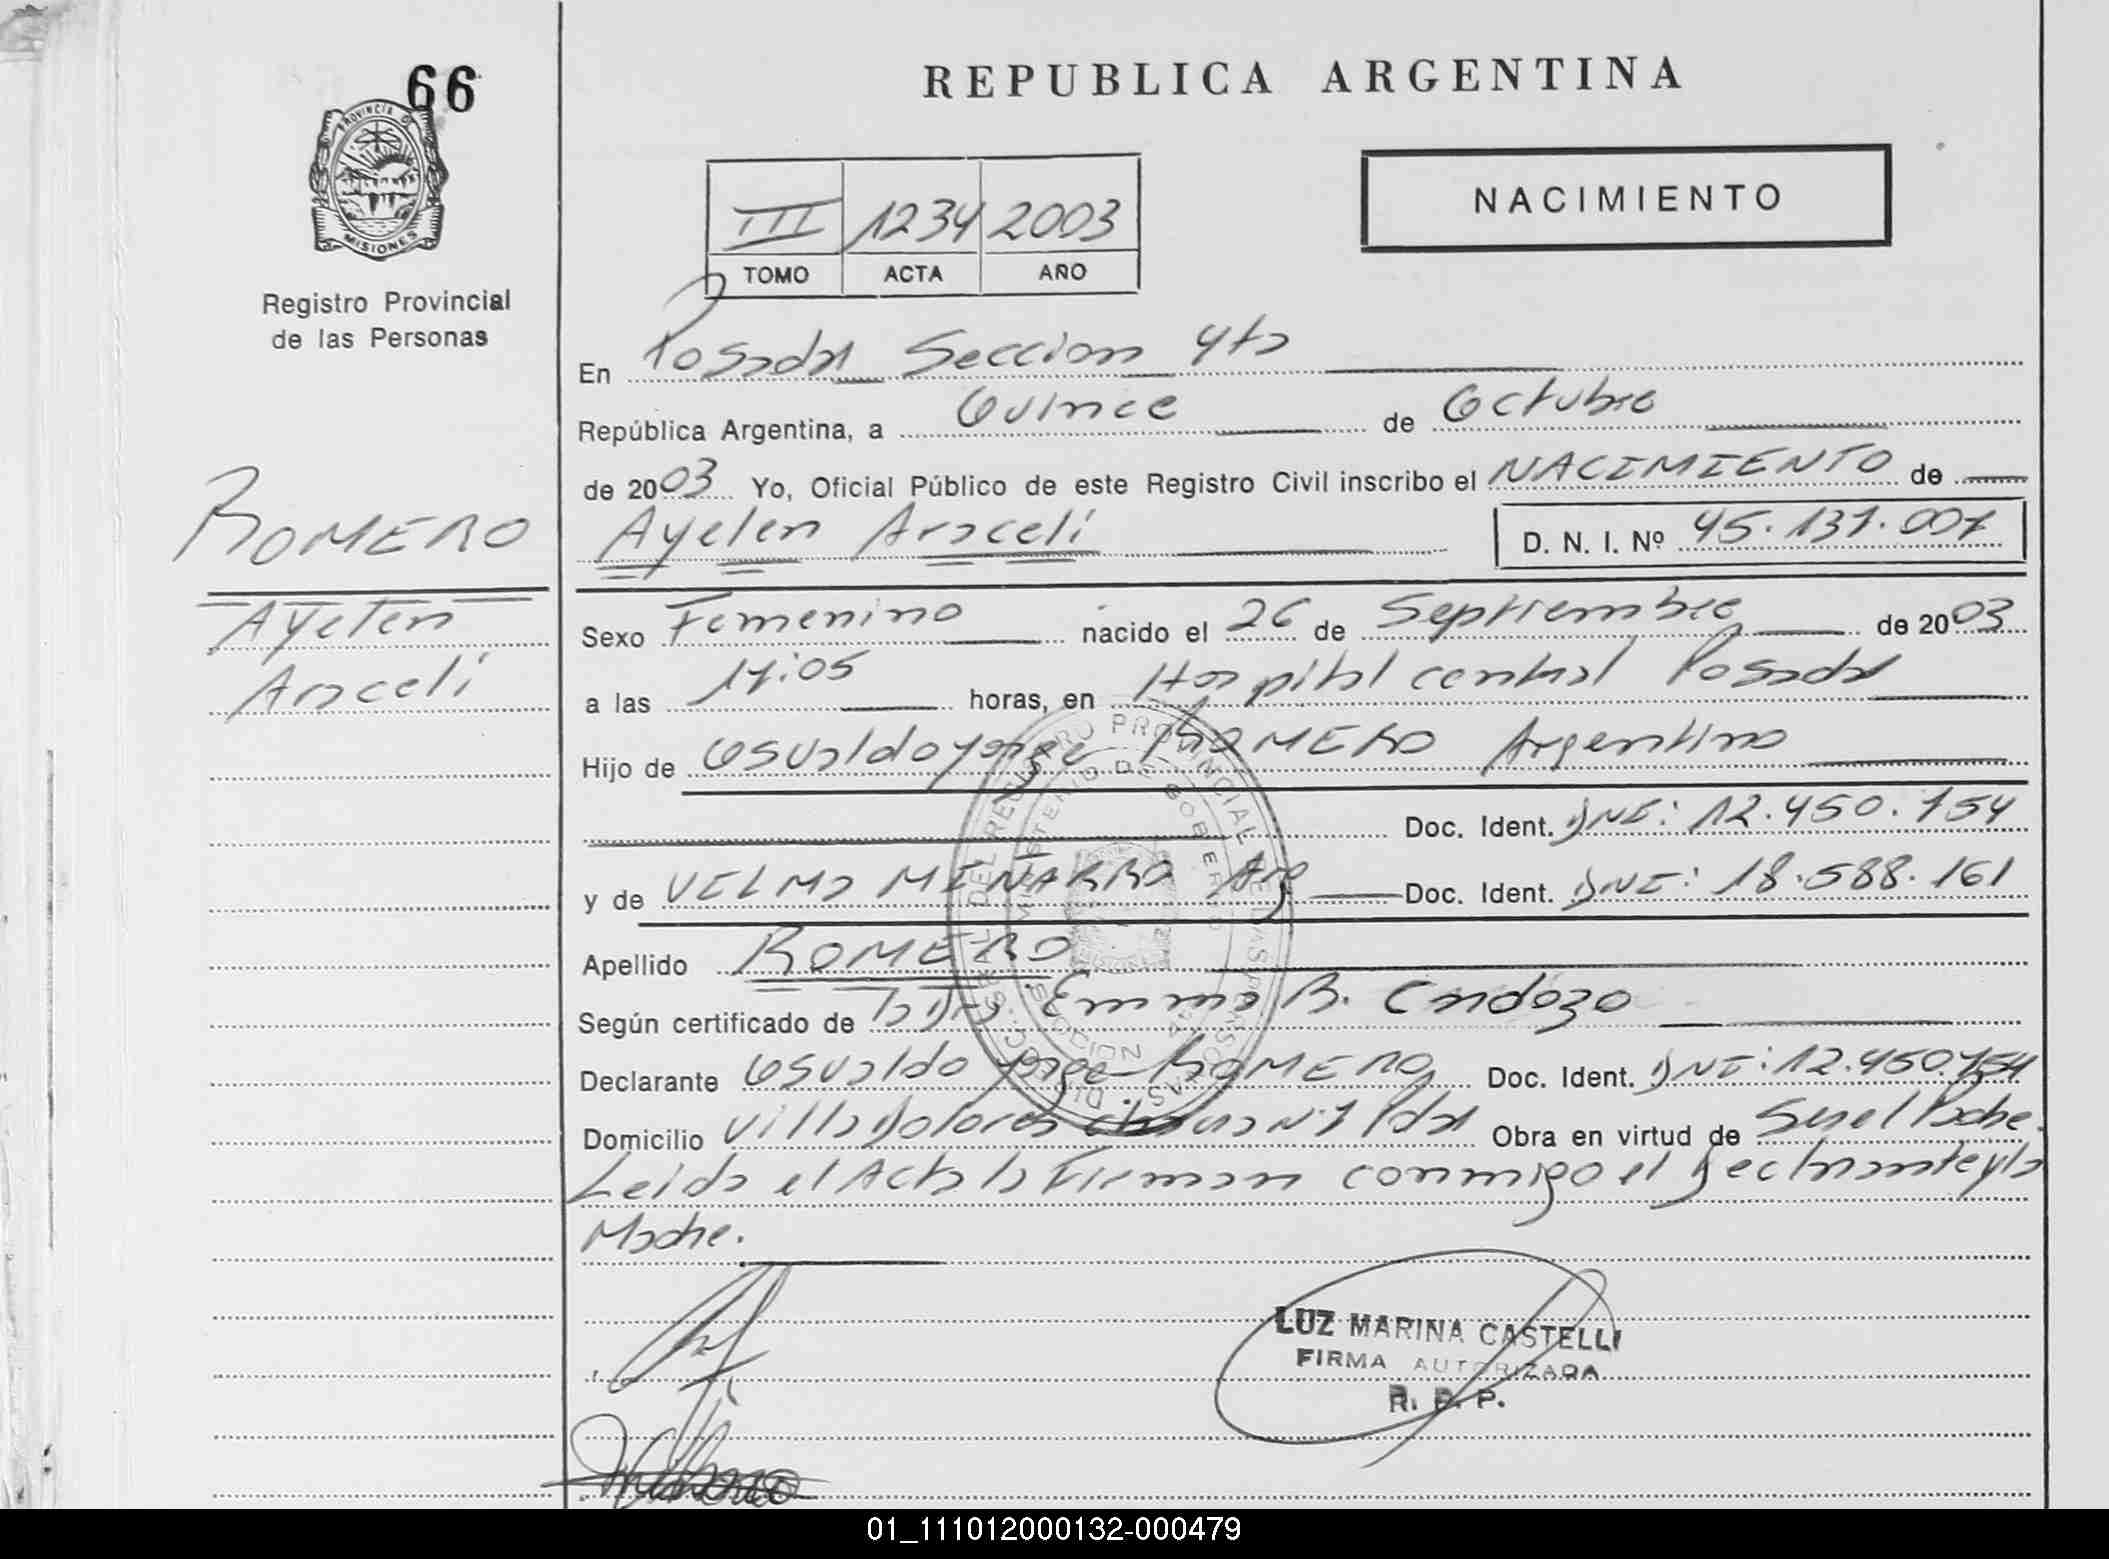 66
REPUBLICA ARGENTINA
PROVINCIA DE
MISIONES
NACIMIENTO
III 1234 2003
TOMO ACTA AÑO
Registro Provincial
de las Personas
En Posadas Seccion 4ta
República Argentina, a Quince de Octubre
de 2003 Yo, Oficial Público de este Registro Civil inscribo el NACIMIENTO de
Ayelen Araceli D. N. I. Nº 45.137.007
ROMERO
Ayelen
Araceli
Sexo Femenino nacido el 26 de Septiembre de 2003
a las 17:05 horas, en Hospital central Posadas
Hijo de Osvaldo Jorge ROMERO Argentino
Doc. Ident. DNI: 12.450.754
y de VELMA MIÑARRO Arg Doc. Ident. DNI: 18.588.161
Apellido ROMERO
Según certificado de la Dra. Emma B. Cardozo
Declarante Osvaldo Jorge ROMERO Doc. Ident. DNI: 12.450.754
Domicilio Villa Dolores Pdas Obra en virtud de Ser el Padre.
Leida el Acta la Firman conmigo el Declarante y la
Madre.
LUZ MARINA CASTELLI
FIRMA AUTORIZADA
R. P. P.
01_111012000132-000479